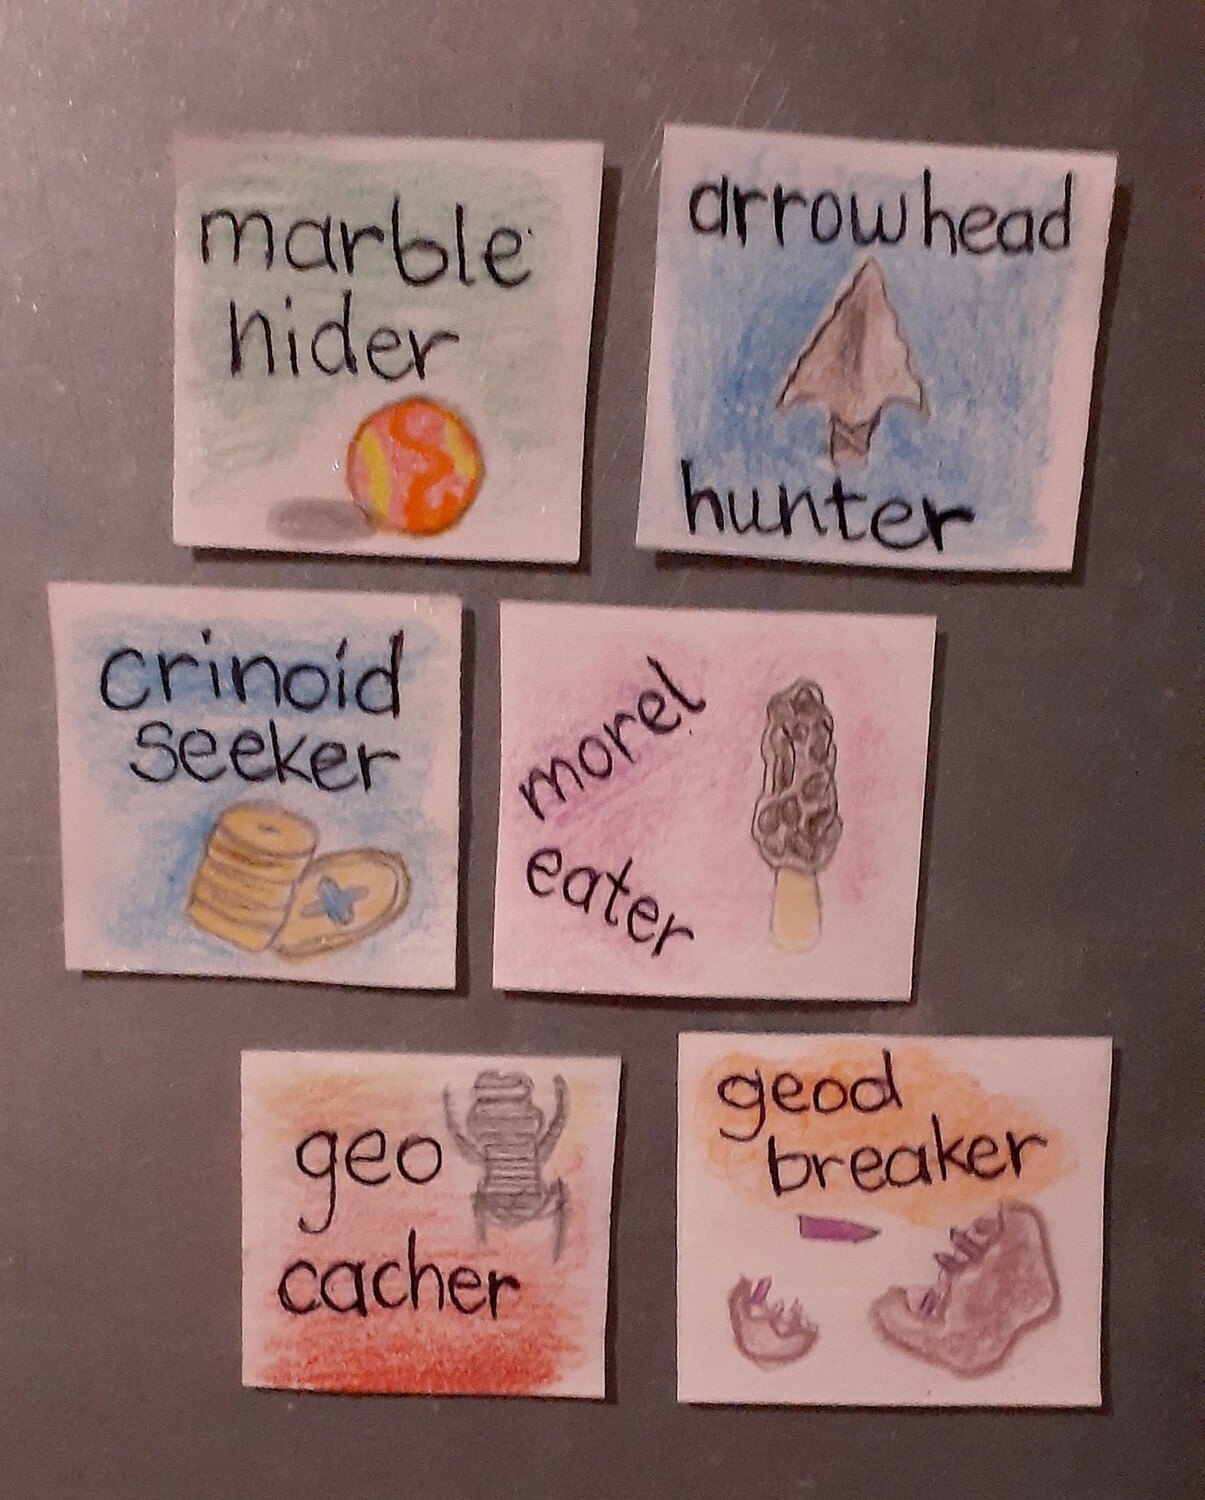 marble
hider
arrowhead
hunter
crinoid
seeker
morel
eater
geo
cacher
geod
breaker